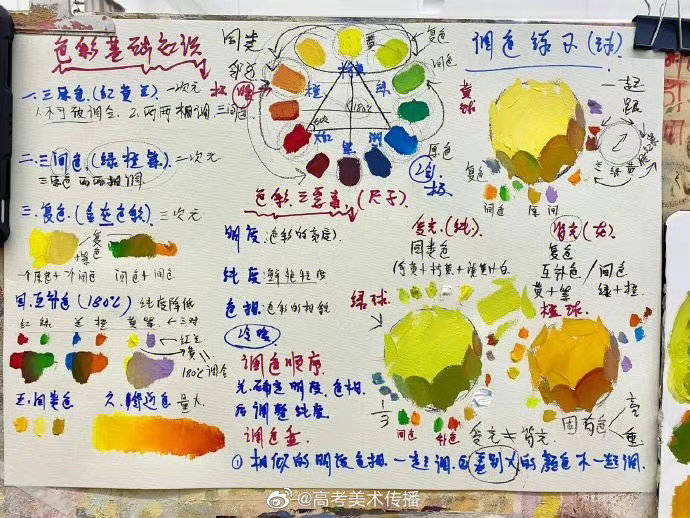 色彩基础知识
一.三原色(红黄兰)一次元
1.不可被调合. 2.两两相调三间色
二.三间色(绿橙紫)二次元
三原色两两相调.
三.复色(含灰色级)三次元
复色
一个原色+一个间色 间色+间色
四.互补色(180%)纯度降低
红 绿 兰 橙 黄 紫 ←三对
180°调合
五.同类色
六.邻近色
同类
邻近
暖
橙
黄
绿
红
紫
180°
60°
复色
间色
原色
色彩三要素.(尺子)
明度:色彩的亮度)
纯度:鲜艳程度
色相:色彩的相貌
冷暖
调色顺序
先确定明度.色相.
后调整纯度.
调色练习(球)
黄球
复色
间色
受光(纯)
同类色
背光(灰)
复色
互补色/间色
黄+紫 绿+橙
绿球
橙球
1/3
间色
补色
受光≠背光
固有色
亮
重
①相似的明度色相一起调.②差别大的颜色不一起调.
@高考美术传播